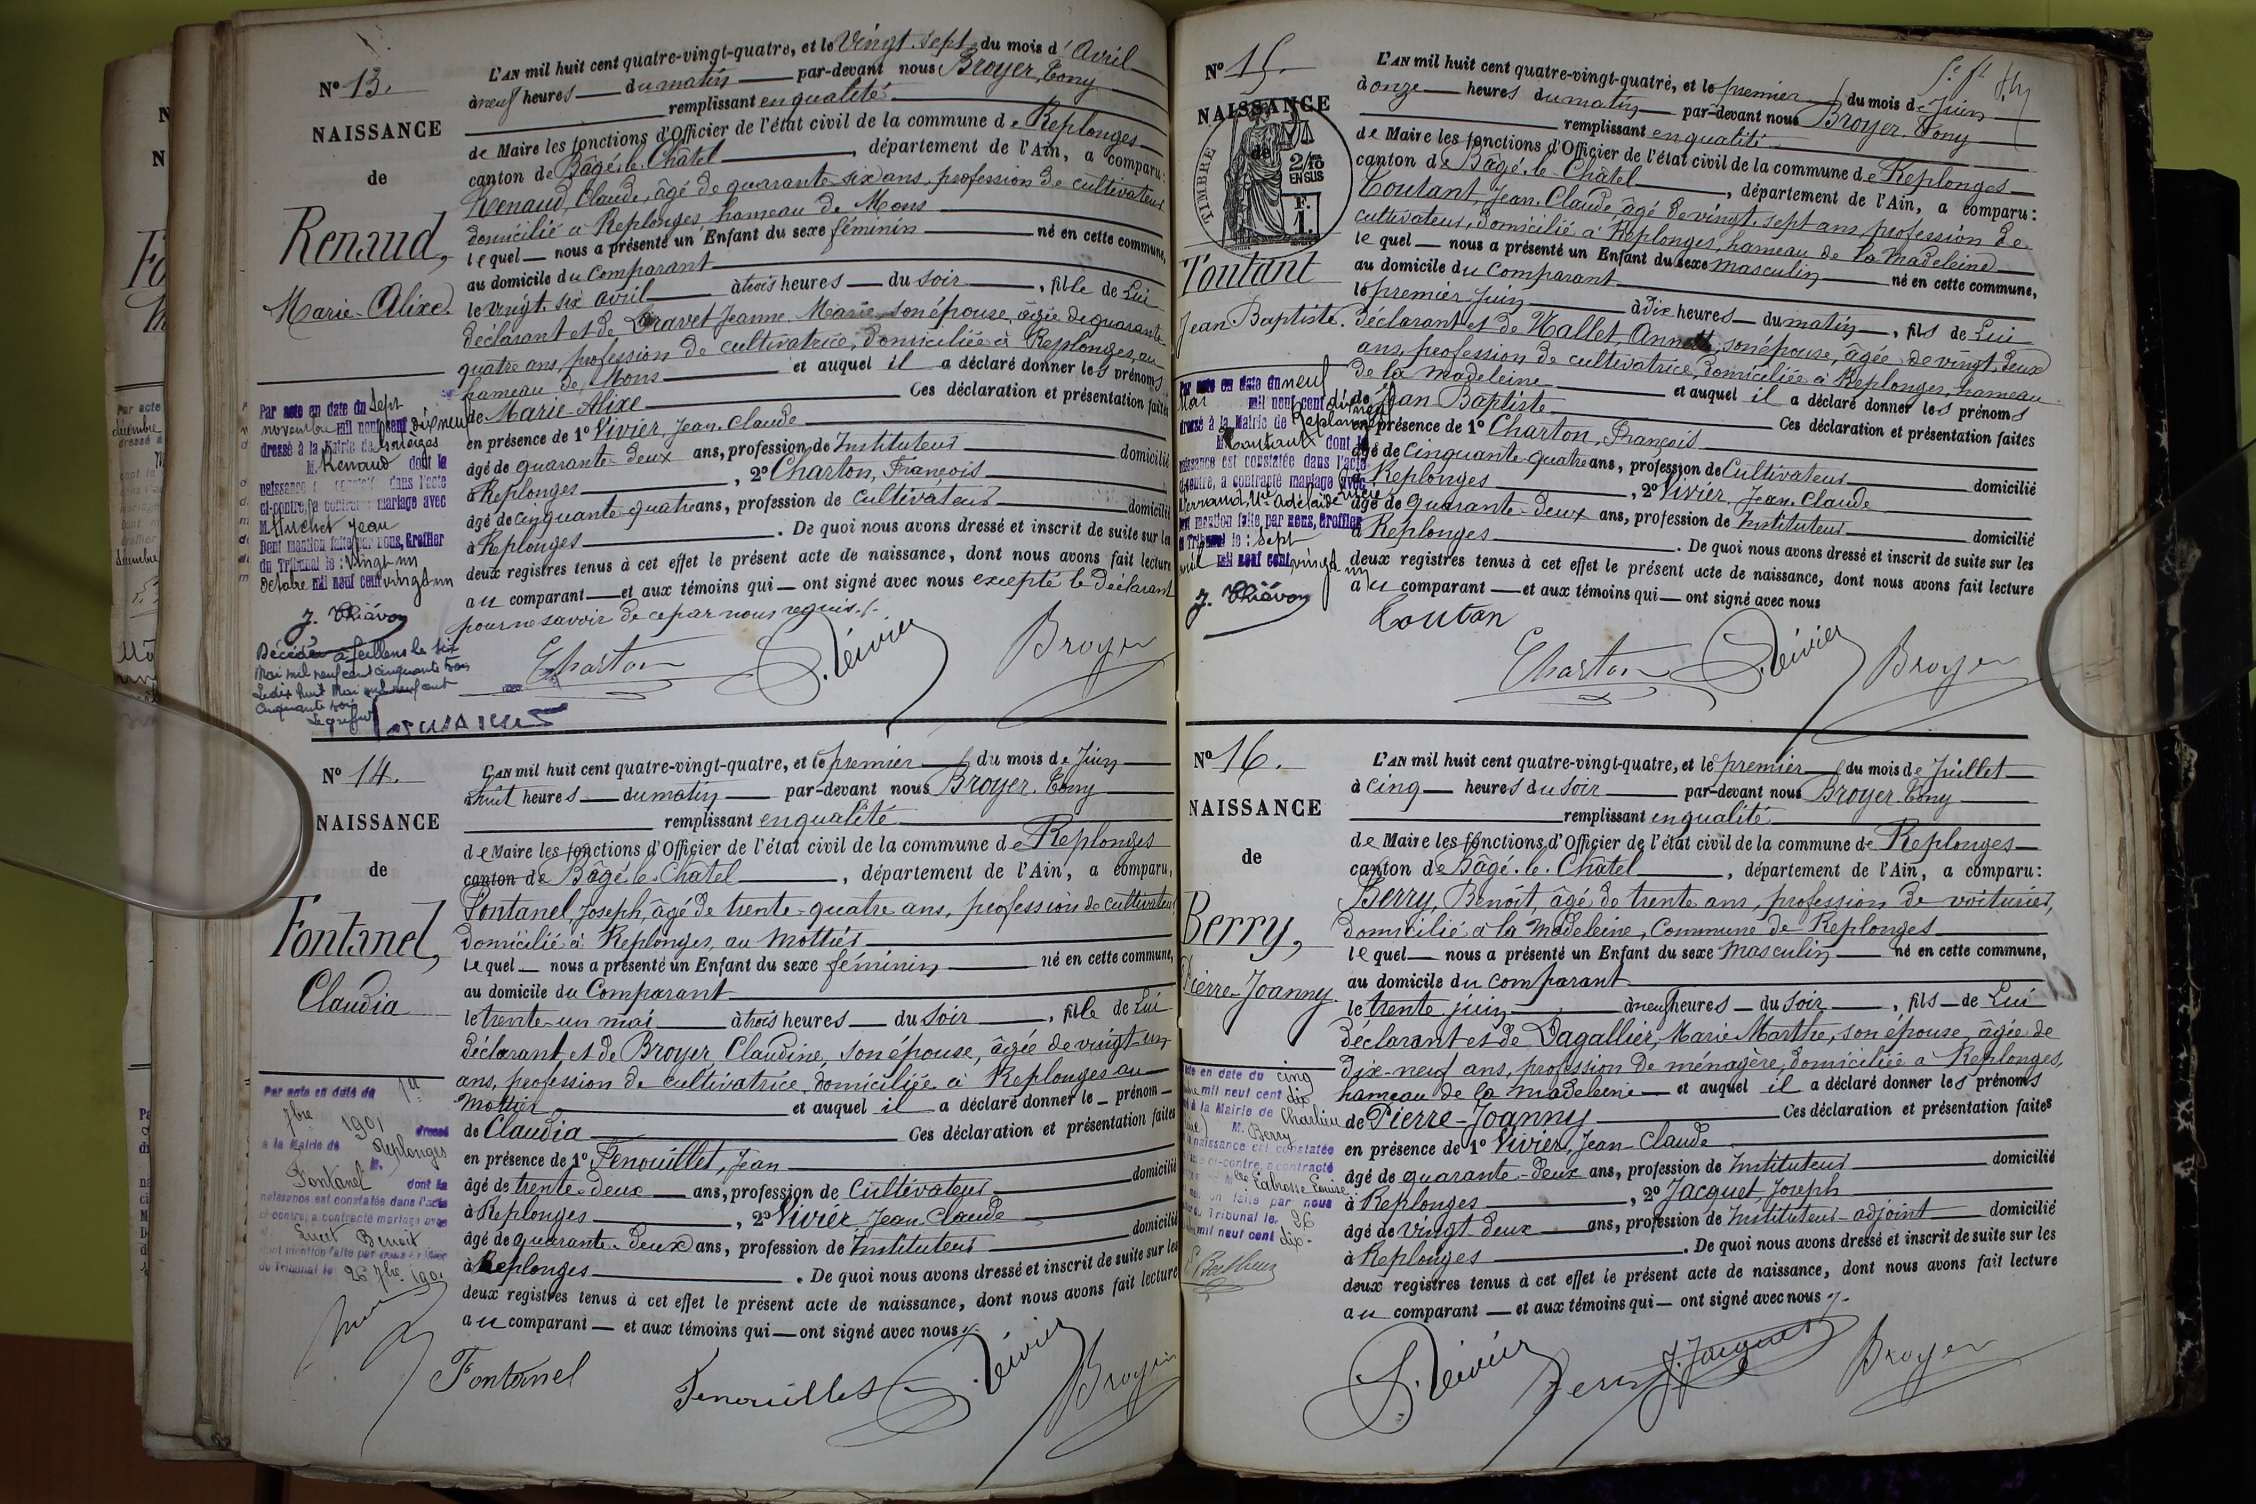 N° 13.
NAISSANCE
de
Renaud,
Marie-Alixe.
L'AN mil huit cent quatre-vingt-quatre, et le vingt-sept du mois d'Avril
à neuf heures du matin par-devant nous Broyer, Tony
remplissant en qualité
de Maire les fonctions d'Officier de l'état civil de la commune de Replonges
canton de Bâgé-le-Châtel, département de l'Ain, a comparu:
Renaud, Claude, âgé de quarante-six ans, profession de cultivateur
domicilié à Replonges hameau de Mons
lequel nous a présenté un Enfant du sexe féminin né en cette commune,
au domicile du comparant
le vingt-six avril à trois heures du soir, fille de Lui
déclarant et de Jeanne Marie, son épouse, âgée de quarante
quatre ans, profession de cultivatrice, domiciliée à Replonges, au
hameau de Mons et auquel il a déclaré donner les prénoms
de Marie-Alixe Ces déclaration et présentation faites
en présence de 1° Vivier, Jean-Claude
âgé de quarante-deux ans, profession de Instituteur domicilié
à Replonges, 2° Charton, François
âgé de cinquante-quatre ans, profession de cultivateur domicilié
à Replonges. De quoi nous avons dressé et inscrit de suite sur les
deux registres tenus à cet effet le présent acte de naissance, dont nous avons fait lecture
au comparant et aux témoins qui ont signé avec nous excepté le déclarant
pour ne savoir de ce par nous requis./.
Charton Vivier Broyer
Par acte en date du sept
novembre mil neuf cent dix neuf
dressé à la Mairie de
M. Renaud dont la
naissance est constatée dans l'acte
ci-contre, a contracté mariage avec
M. Huchet Jean
Dont mention faite par nous, Greffier
du Tribunal le: vingt un
octobre mil neuf cent vingt un
J. Thiévon
Décédée à Feillens le six
Mai mil neuf cent cinquante trois
Le dix huit Mai mil neuf cent
cinquante trois
Le greffier
N° 14.
NAISSANCE
de
Fontanel,
Claudia
L'AN mil huit cent quatre-vingt-quatre, et le premier du mois de Juin
à huit heures du matin par-devant nous Broyer, Tony
remplissant en qualité
de Maire les fonctions d'Officier de l'état civil de la commune de Replonges
canton de Bâgé-le-Châtel, département de l'Ain, a comparu,
Fontanel, Joseph, âgé de trente-quatre ans, profession de cultivateur
domicilié à Replonges, au Mottier
lequel nous a présenté un Enfant du sexe féminin né en cette commune,
au domicile du Comparant
le trente-un mai à trois heures du soir, fille de Lui
déclarant et de Broyer, Claudine, son épouse, âgée de vingt-un
ans, profession de cultivatrice, domiciliée à Replonges au
Mottier et auquel il a déclaré donner le prénom
de Claudia Ces déclaration et présentation faites
en présence de 1° Fenouillet, Jean
âgé de trente-deux ans, profession de cultivateur domicilié
à Replonges, 2° Vivier, Jean-Claude
âgé de quarante-deux ans, profession de Instituteur domicilié
à Replonges. De quoi nous avons dressé et inscrit de suite sur les
deux registres tenus à cet effet le présent acte de naissance, dont nous avons fait lecture
au comparant et aux témoins qui ont signé avec nous./.
Fontanel Fenouillet Vivier Broyer
Par acte en date du
7bre 1901 dressé
à la Mairie de Replonges
M. Fontanel dont la
naissance est constatée dans l'acte
ci-contre, a contracté mariage avec
Benoit
dont mention faite par nous
du Tribunal le 26 7bre 1901
N° 15.
NAISSANCE
de
TIMBRE
2/10
EN SUS
F.
1.
Toutant
Jean Baptiste.
L'AN mil huit cent quatre-vingt-quatre, et le premier du mois de Juin
à onze heures du matin par-devant nous Broyer, Tony
remplissant en qualité
de Maire les fonctions d'Officier de l'état civil de la commune de Replonges
canton de Bâgé-le-Châtel, département de l'Ain, a comparu:
Toutant, Jean-Claude, âgé de vingt-sept ans, profession de
cultivateur, domicilié à Replonges, hameau de la Madeleine
lequel nous a présenté un Enfant du sexe masculin né en cette commune,
au domicile du comparant
le premier Juin à dix heures du matin, fils de Lui
déclarant et de Mallet, son épouse, âgée de vingt-deux
ans, profession de cultivatrice, domiciliée à Replonges, hameau
de la madeleine et auquel il a déclaré donner les prénoms
de Jean Baptiste Ces déclaration et présentation faites
en présence de 1° Charton, François
âgé de cinquante-quatre ans, profession de Cultivateur domicilié
à Replonges, 2° Vivier, Jean-Claude
âgé de quarante-deux ans, profession de Instituteur domicilié
à Replonges. De quoi nous avons dressé et inscrit de suite sur les
deux registres tenus à cet effet le présent acte de naissance, dont nous avons fait lecture
au comparant et aux témoins qui ont signé avec nous
Toutan
Charton Vivier Broyer
Par acte en date du neuf
Mai mil neuf cent dix neuf
dressé à la Mairie de Replonges
M. Toutant dont la
naissance est constatée dans l'acte
ci-contre, a contracté mariage avec
Adélaïde
Dont mention faite par nous, Greffier
du Tribunal le: sept
mil neuf cent vingt un
J. Thiévon
N° 16.
NAISSANCE
de
Berry,
Pierre-Joanny.
L'AN mil huit cent quatre-vingt-quatre, et le premier du mois de Juillet
à cinq heures du soir par-devant nous Broyer, Tony
remplissant en qualité
de Maire les fonctions d'Officier de l'état civil de la commune de Replonges
canton de Bâgé-le-Châtel, département de l'Ain, a comparu:
Berry, Benoît, âgé de trente ans, profession de voiturier,
domicilié à la Madeleine, Commune de Replonges
lequel nous a présenté un Enfant du sexe masculin né en cette commune,
au domicile du comparant
le trente juin à neuf heures du soir, fils de Lui
déclarant et de Dagallier, Marie Marthe, son épouse, âgée de
dix-neuf ans, profession de ménagère, domiciliée à Replonges,
hameau de la Madeleine et auquel il a déclaré donner les prénoms
de Pierre-Joanny Ces déclaration et présentation faites
en présence de 1° Vivier, Jean-Claude
âgé de quarante-deux ans, profession de Instituteur domicilié
à Replonges, 2° Jacquet, Joseph
âgé de vingt-deux ans, profession de Instituteur-adjoint domicilié
à Replonges. De quoi nous avons dressé et inscrit de suite sur les
deux registres tenus à cet effet le présent acte de naissance, dont nous avons fait lecture
au comparant et aux témoins qui ont signé avec nous./.
Vivier Berry J. Jacquet Broyer
acte en date du cinq
mil neuf cent dix
à la Mairie de Charlieu
M. Berry
naissance est constatée
ci-contre, a contracté
Labrosse Louise
faite par nous
du Tribunal le 26
mil neuf cent dix.